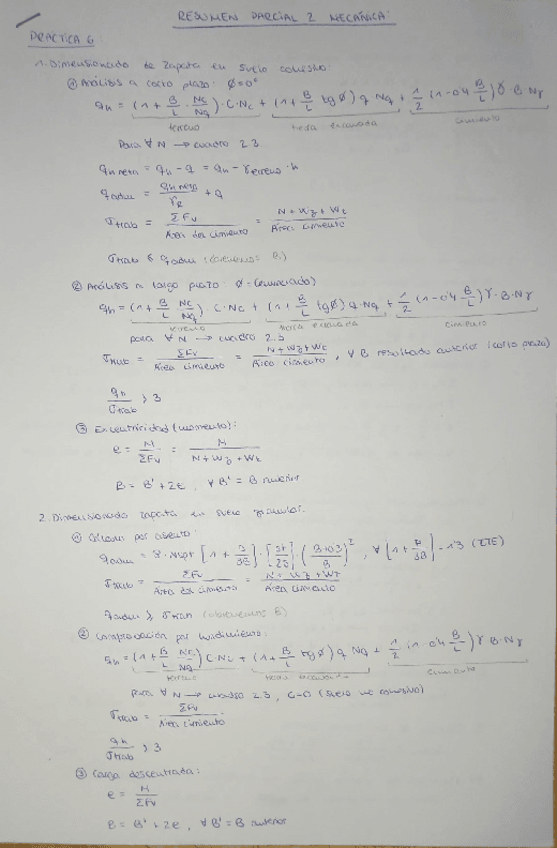 RESUMEN PARCIAL 2 MECÁNICA:
PRACTICA 6
1. Dimensionado de zapata en suelo cohesivo:
① Análisis a corto plazo: Ø=0°
qh = (1 + B/L · Nc/Nq) · C · Nc + (1 + B/L tgØ) q Nq + 1/2 (1-0'4 B/L) γ · B Nγ
terreno tierra excavada cimiento
Para ∀ N → cuadro 2.3.
qh neta = qh - q = qh - γterreno · h
qadm = qh neta/γR + q
σtrab = ΣFv/Área del cimiento = N + Wz + Wt/Área cimiento
σtrab ≤ qadm (obtenemos B)
② Análisis a largo plazo: Ø = (enunciado)
qh = (1 + B/L Nc/Nq) C · Nc + (1 + B/L tgØ) q · Nq + 1/2 (1-0'4 B/L) γ · B · Nγ
terreno tierra excavada cimiento
para ∀ N → cuadro 2.3
σtrab = ΣFv/Área cimiento = N + Wz + Wt/Área cimiento, ∀ B resultado anterior (corto plazo)
qh/σtrab ≥ 3
③ Excentricidad (momento):
e = M/ΣFv = M/N + Wz + Wt
B = B' + 2e, ∀ B' = B anterior
2. Dimensionado zapata en suelo granular.
① Cálculo por asiento:
qadm = 8 · Nspt [1 + D/3B] · [St/25] · (B+0'3/B)², ∀ [1 + D/3B] - 1'3 (CTE)
σtrab = ΣFv/Área del cimiento = N + Wz + Wt/Área cimiento
qadm ≥ σtrab (obtenemos B)
② Comprobación por hundimiento:
qh = (1 + B/L Nc/Nq) C · Nc + (1 + B/L tgØ) q Nq + 1/2 (1-0'4 B/L) γ B · Nγ
terreno tierra excavada cimiento
para ∀ N → cuadro 2.3, C=0 (suelo no cohesivo)
σtrab = ΣFv/Área cimiento
qh/σtrab ≥ 3
③ Carga descentrada:
e = M/ΣFv
B = B' + 2e, ∀ B' = B anterior